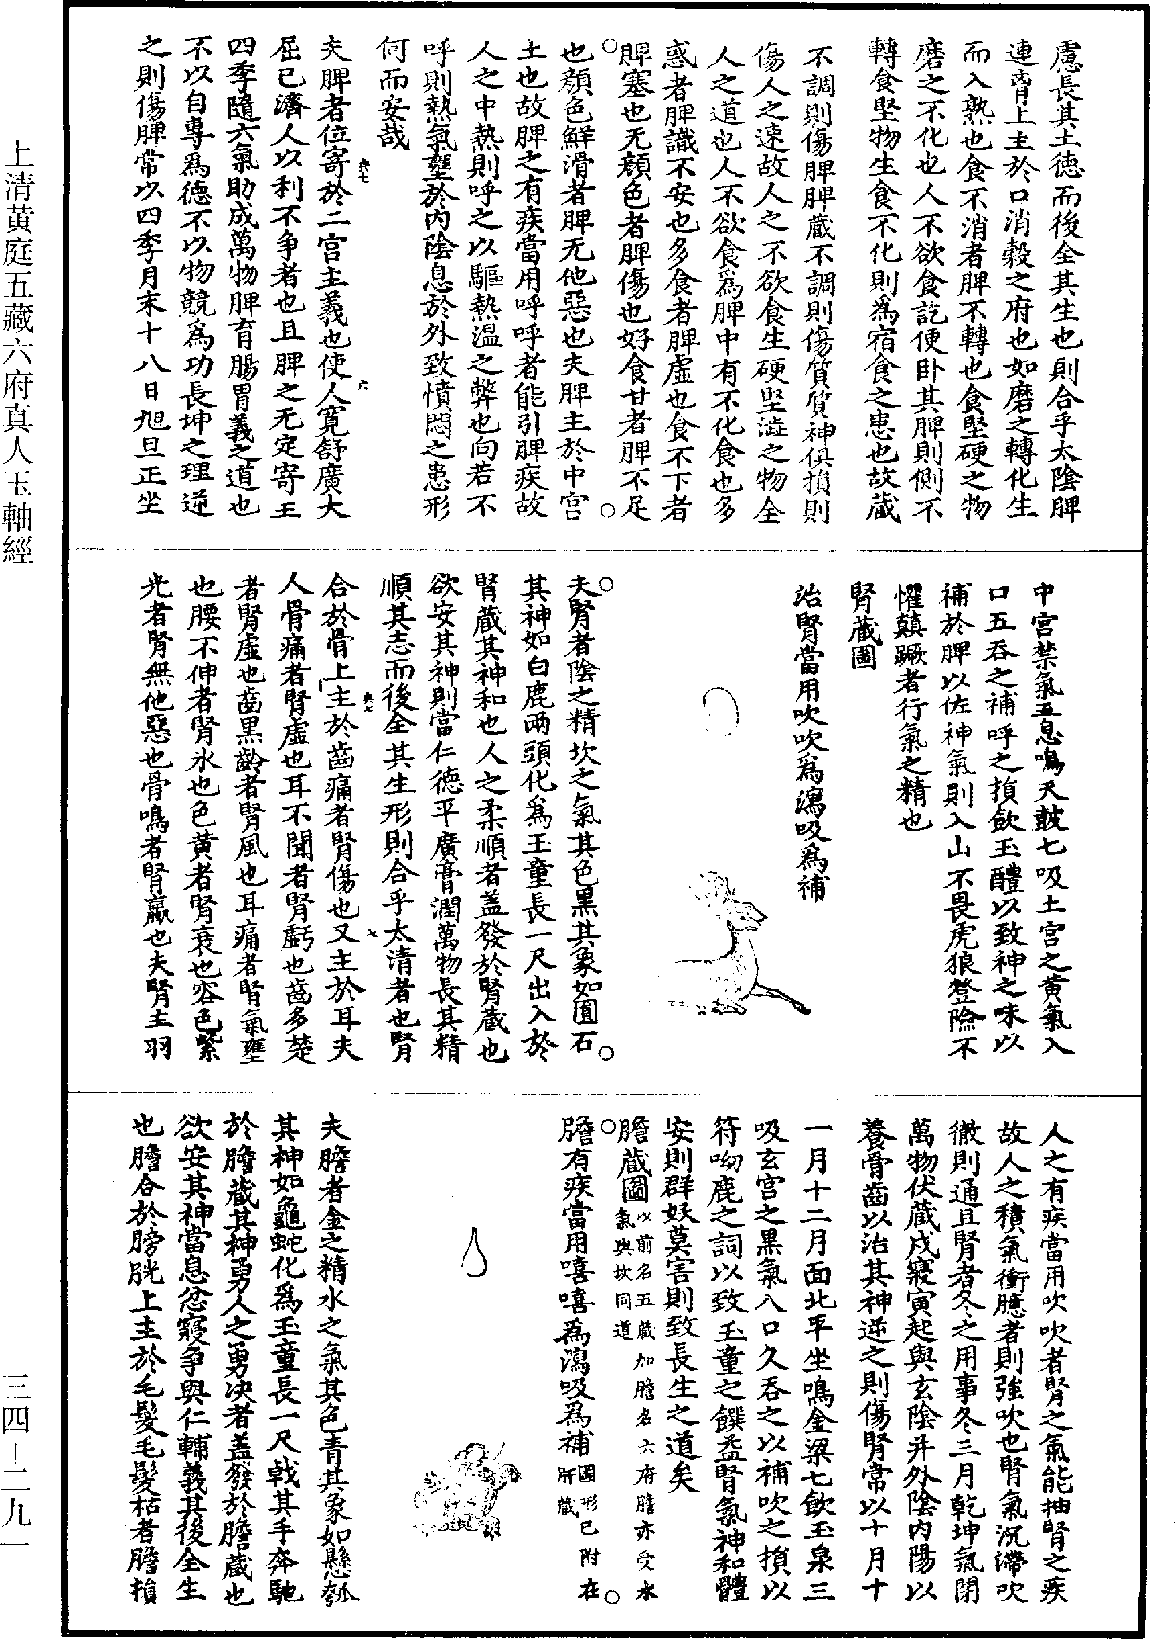 慮長其土德而後全其生也則合乎太陰脾
連胃上主於口消穀之府也如磨之轉化生
而入熟也食不消者脾不轉也食堅硬之物
磨之不化也人不欲食訖便卧其脾則側不
轉食堅物生食不化則爲宿食之患也故藏
不調則傷脾脾藏不調則傷質質神俱損則
傷人之速故人之不欲食生硬堅澁之物全
人之道也人不欲食爲脾中有不化食也多
惑者脾識不安也多食者脾虛也食不下者
脾塞也无顏色者脾傷也好食甘者脾不足
也顏色鮮滑者脾无他惡也夫脾主於中宮
土也故脾之有疾當用呼呼者能引脾疾故
人之中熱則呼之以驅熱溫之弊也向若不
呼則熱氣壅於內陰息於外致憤悶之患形
何而安哉
夫脾者位寄於二宮主義也使人寬舒廣大
屈己濟人以利不争者也且脾之无定寄王
四季隨六氣助成萬物脾育腸胃義之道也
不以自專爲德不以物競爲功長坤之理逆
之則傷脾常以四季月末十八日旭旦正坐
中宮禁氣五息鳴天鼓七吸土宮之黄氣入
口五吞之補呼之損飲玉醴以致神之味以
補於脾以佐神氣則入山不畏虎狼登險不
懼顛蹶者行氣之精也
腎藏圖
治腎當用吹吹爲瀉吸爲補
夫腎者陰之精坎之氣其色黑其象如圓石
其神如白鹿兩頭化爲玉童長一尺出入於
腎藏其神和也人之柔順者盖發於腎藏也
欲安其神則當仁德平廣膏潤萬物長其精
順其志而後全其生形則合乎太清者也腎
合於骨上主於齒痛者腎傷也又主於耳夫
人骨痛者腎虛也耳不聞者腎虧也齒多楚
者腎虛也齒黑齡者腎風也耳痛者腎氣壅
也腰不伸者腎氷也色黄者腎衰也容色紫
光者腎無他惡也骨鳴者腎羸也夫腎主羽
人之有疾當用吹吹者腎之氣能抽腎之疾
故人之積氣衝臆者則強吹也腎氣沉滯吹
徹則通且腎者冬之用事冬三月乾坤氣閉
萬物伏藏戌寢寅起與玄陰并外陰內陽以
養骨齒以治其神逆之則傷腎常以十月十
一月十二月面北平坐鳴金梁七飲玉泉三
吸玄宮之黑氣入口久吞之以補吹之損以
符呦鹿之詞以致玉童之饌益腎氣神和體
安則群妖莫害則致長生之道矣
膽藏圖以前名五藏加膽名六府膽亦受水氣與坎同道
膽有疾當用嘻嘻爲瀉吸爲補圖形已附在肝藏
夫膽者金之精水之氣其色青其象如懸瓠
其神如龜蛇化爲玉童長一尺戟其手奔馳
於膽藏其神勇人之勇决者盖發於膽藏也
欲安其神當息忿寢争輿仁輔義其後全生
也膽合於膀胱上主於毛髮毛髮枯者膽損
上清黄庭五藏六府真人玉軸經
三四—二九一